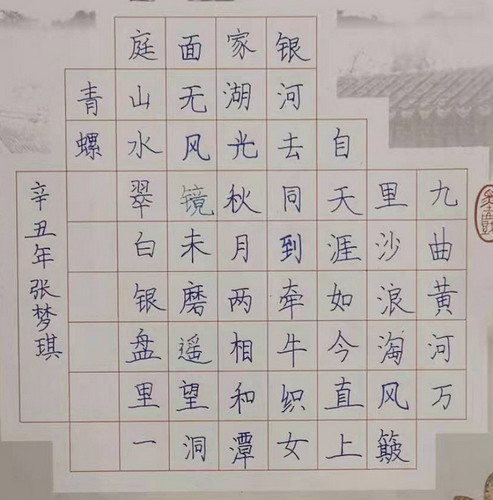 九曲黄河万
里沙浪淘风簸
自天涯如今直上
银河去同到牵牛织女
家湖光秋月两相和潭
面无风镜未磨遥望洞
庭山水翠白银盘里一
青螺
辛丑年张梦琪